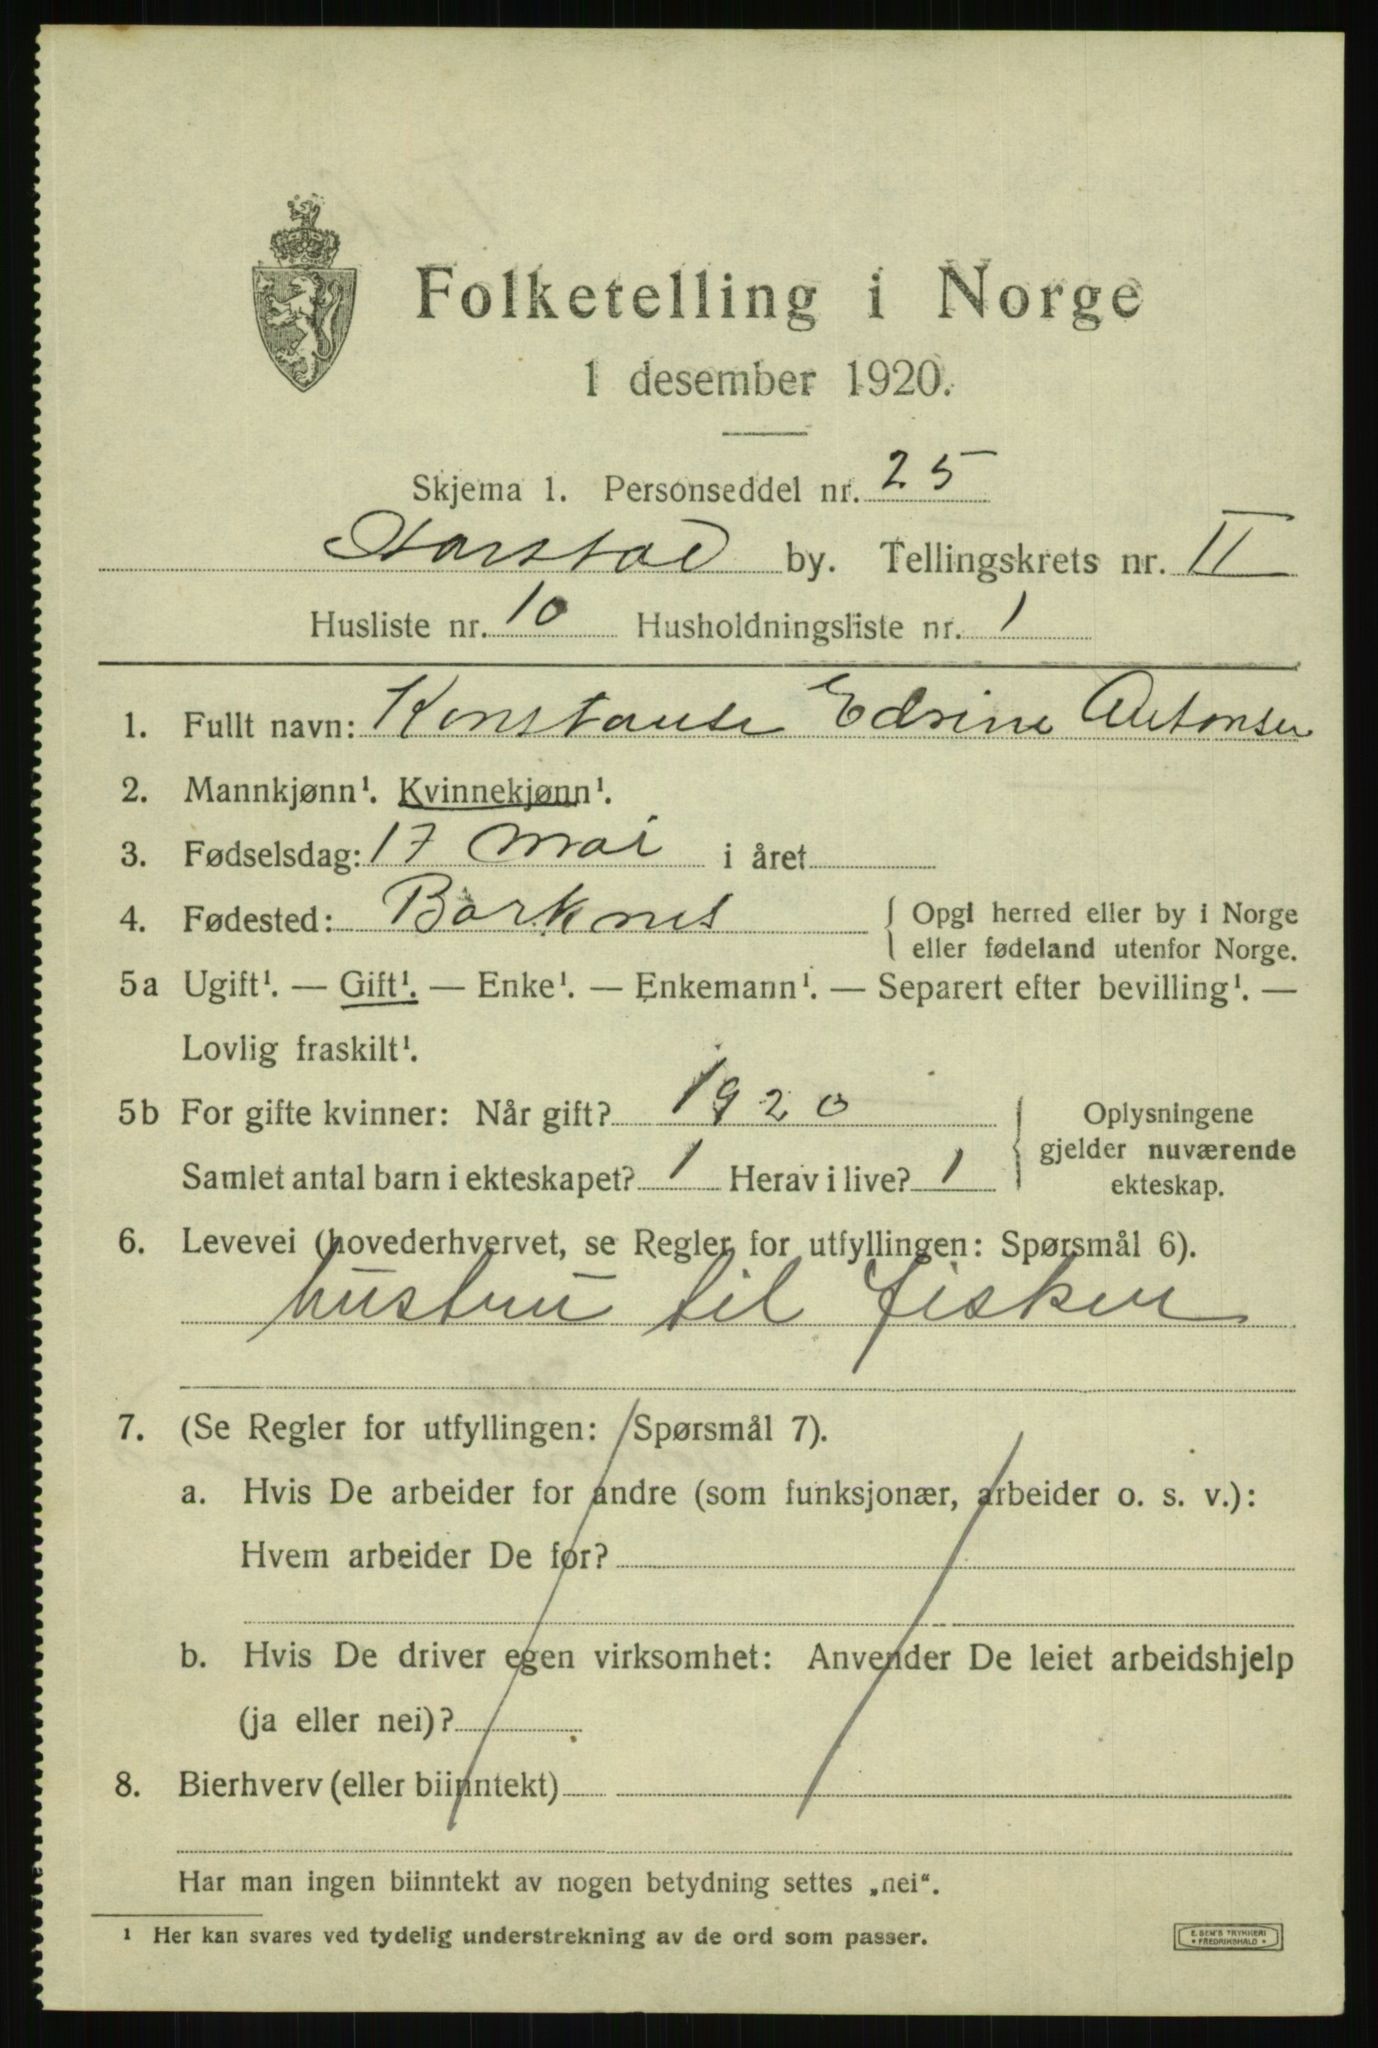 Folketelling i Norge
1 desember 1920.
Skjema 1. Personseddel nr. 25
Harstad by. Tellingskrets nr. II
Husliste nr. 10 Husholdningsliste nr. 1
1. Fullt navn: Konstanse Edrine Antonsen
2. Mannkjønn¹. Kvinnekjønn¹.
3. Fødselsdag: 17 mai i året
4. Fødested: Borknes { Opgi herred eller by i Norge
eller fødeland utenfor Norge.
5a Ugift¹. — Gift¹. — Enke¹. — Enkemann¹. — Separert efter bevilling¹. —
Lovlig fraskilt¹.
5b For gifte kvinner: Når gift? 1920
Samlet antal barn i ekteskapet? 1 Herav i live? 1
Oplysningene
gjelder nuværende
ekteskap.
6. Levevei (hovederhvervet, se Regler for utfyllingen: Spørsmål 6).
hustru til fisker
7. (Se Regler for utfyllingen: Spørsmål 7).
a. Hvis De arbeider for andre (som funksjonær, arbeider o. s. v.):
Hvem arbeider De for?
b. Hvis De driver egen virksomhet: Anvender De leiet arbeidshjelp
(ja eller nei)?
8. Bierhverv (eller biinntekt)
Har man ingen biinntekt av nogen betydning settes „nei“.
¹ Her kan svares ved tydelig understrekning av de ord som passer.
E. SEM'S TRYKKERI
• FREDRIKSHALD •